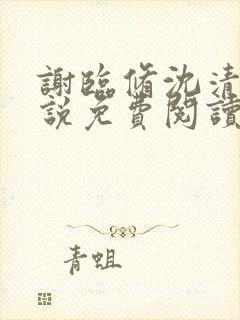 謝臨脩沈清
說免費閱讀
青蛆